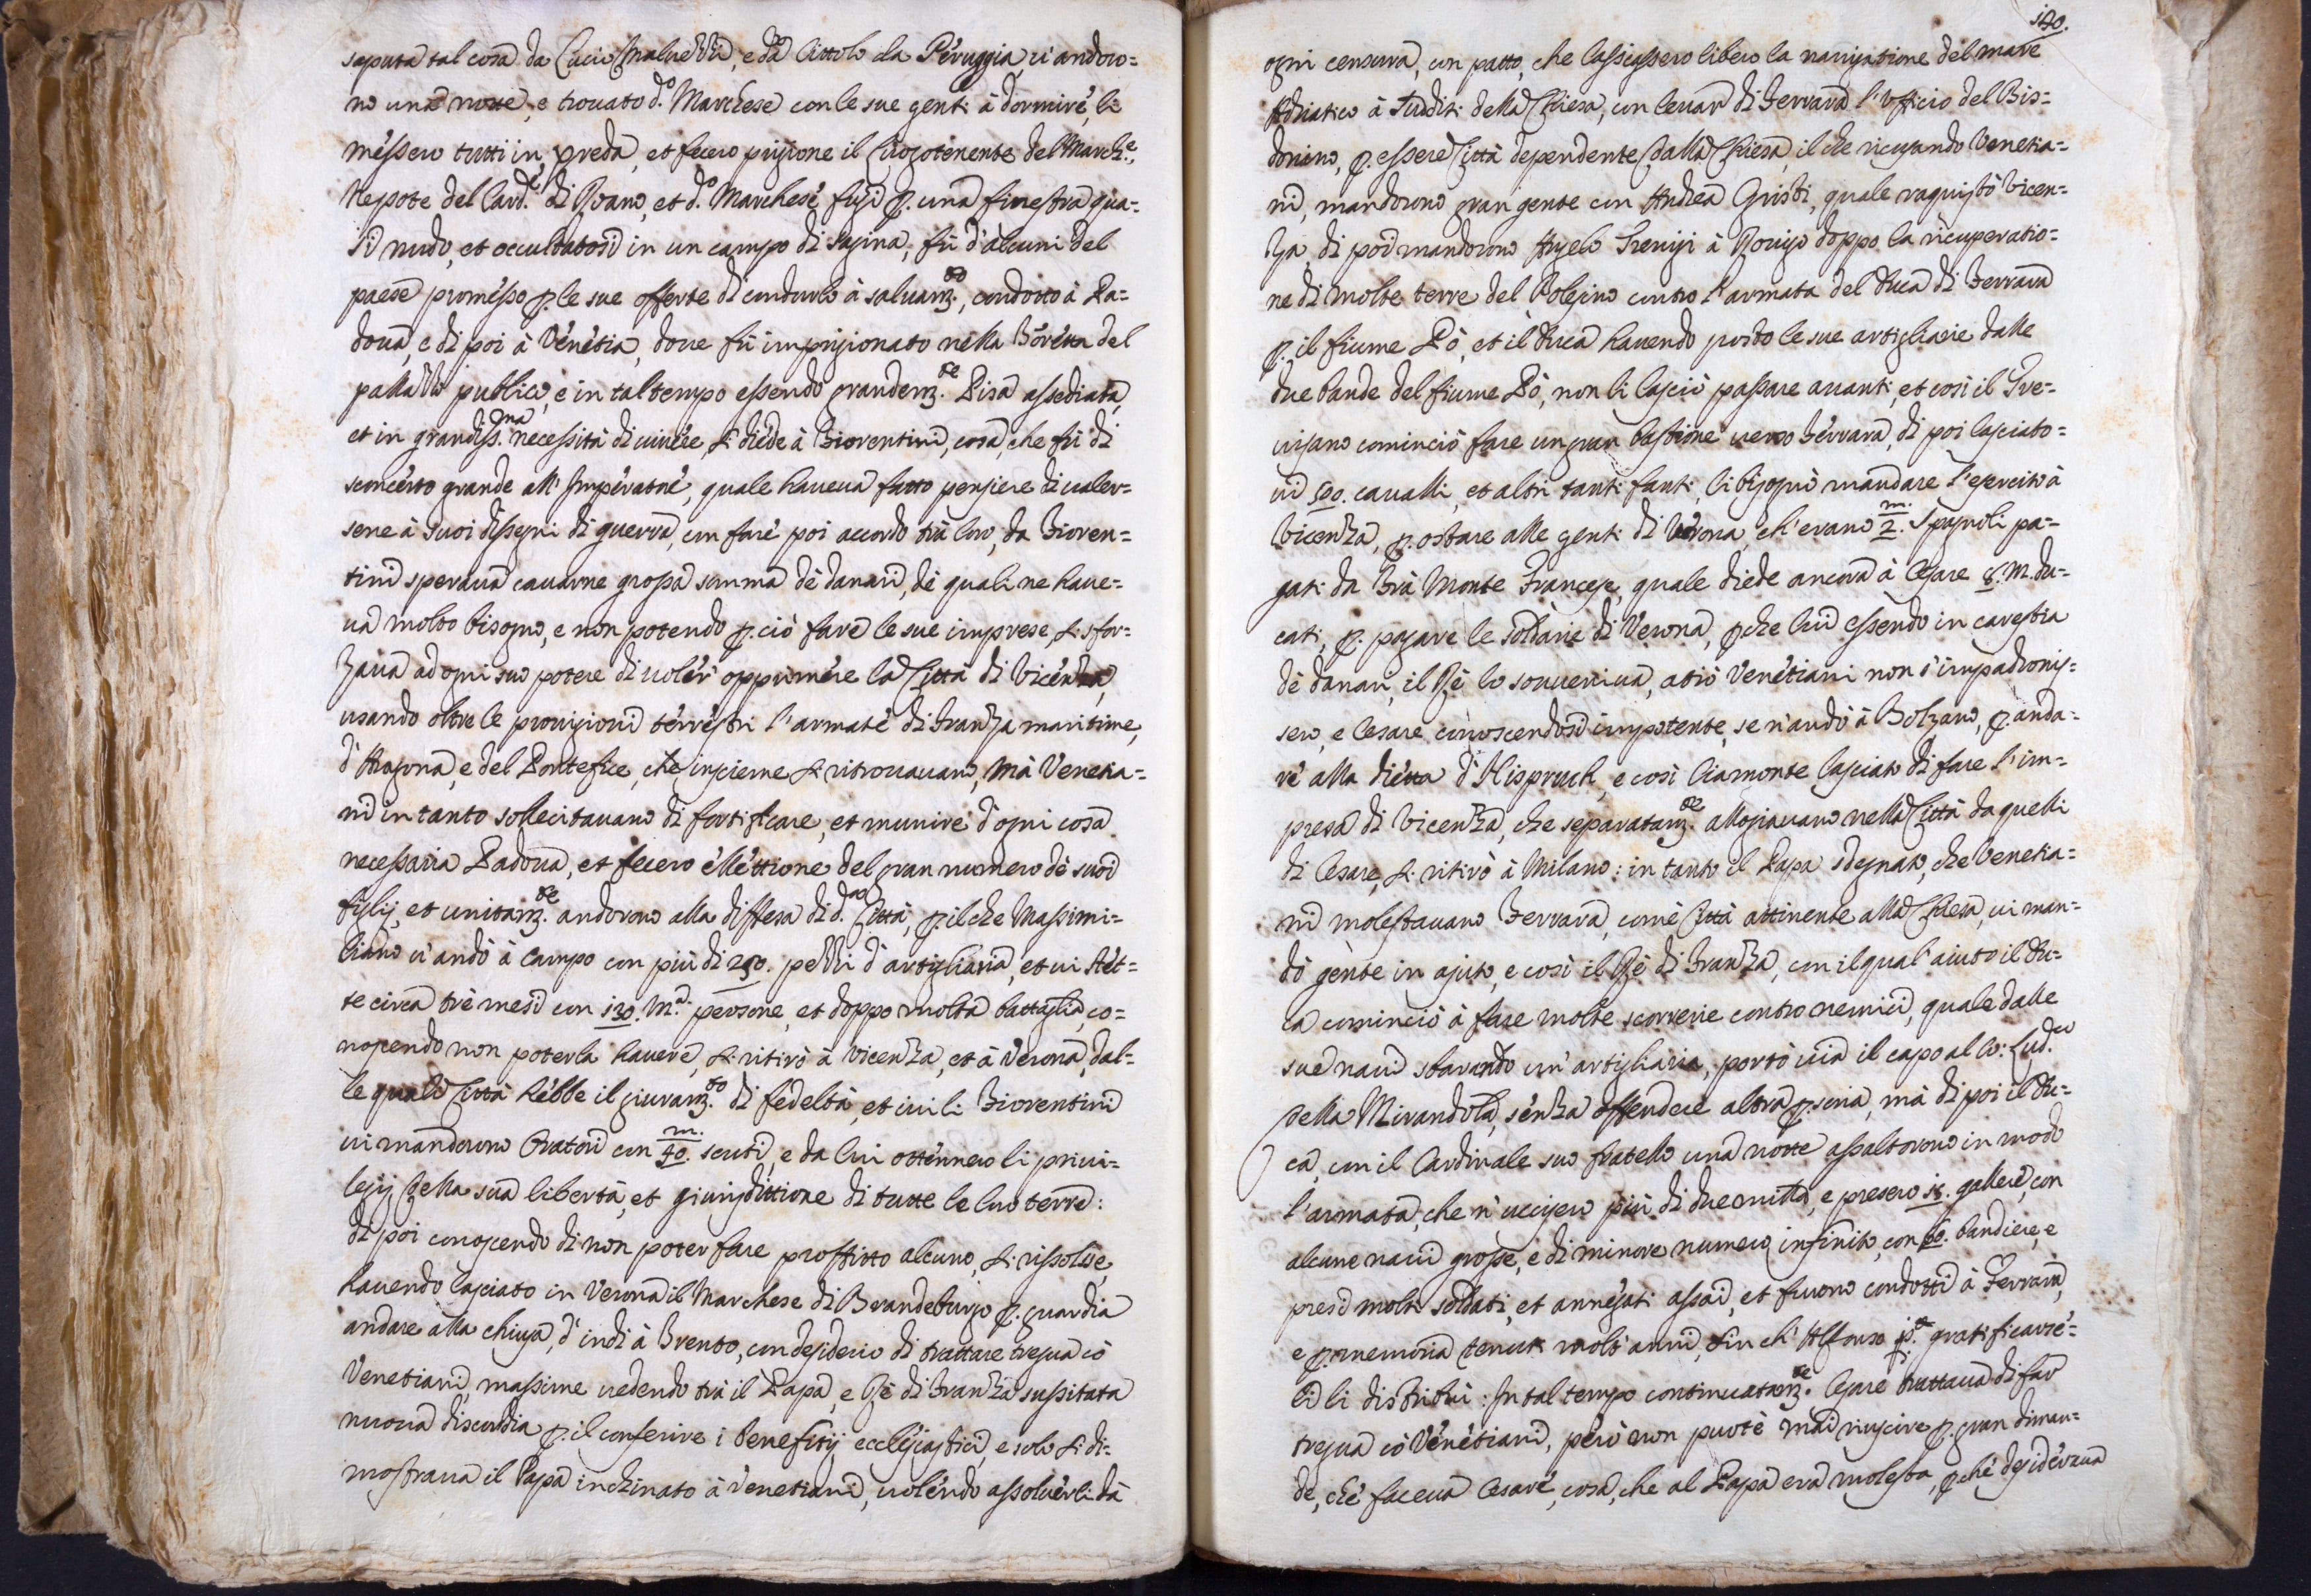 saputa tal cosa da Lucio Malvezzi, e da Cittolo da Peruggia, vi andoro=
no una notte, e trovato d.º Marchese con le sue genti à dormire, li
messero tutti in preda, et fecero prigione il luogotenente del March.e,
Nepote del Card.e di Roano, et d.º Marchese fugì p. una finestra qua=
si nudo, et occultatosi in un campo di sagina, fù d'alcuni del
paese promesso p. le sue offerte di condurlo à salvam.to, condotto à Pa=
doua, e di poi à Venetia, doue fù imprigionato nella Toretta del
pallazzo publico, e in tal tempo essendo grandem.te Pisa assediata,
et in grandiss.ma necessità di uiuere, si diede à Fiorentini, cosa, che fù di
sconcerto grande all'Imperatore, quale haueua fatto pensiere di ualer=
sene à suoi dissegni di guerra, con fare poi accordo trà loro, da Fioren=
tini speraua cauarne grossa summa de danari, de quali ne haue=
ua molto bisogno, e non potendo p. ciò fare le sue imprese, si sfor=
zaua ad ogni suo potere di uoler opprimere la Città di Vicenza,
usando oltre le prouigioni terrestri l'armate di Franza maritime,
d'Aragona, e del Pontefice, che insieme si ritrouauano, mà Venetia=
ni in tanto sollecitauano di fortificare, et munire d'ogni cosa
necessaria Padoua, et fecero ellettione del gran numero de suoi
figlij, et unitam.te andorono alla diffesa di d.ta Città, p. il che Massimi=
liano u'andò à campo con più di 250. pezzi d'artigliaria, et ui stet=
te circa tre mesi con 130. M.a persone, et doppo molta battaglia, co=
noscendo non poterla hauere, si ritirò à Vicenza, et à Verona, dal=
le quali Città hebbe il giuram.to di fedeltà, et iui li Fiorentini
ui mandorono Oratori con 40. m. scuti, e da lui ottennero li priui=
legij della sua libertà, et giurisdittione di tutte le loro terre:
di poi conoscendo di non poter fare proffitto alcuno, si rissolse,
hauendo lasciato in Verona il Marchese di Brandeburgo p. guardia
andare alla chiusa, d'indi à Trento, con desiderio di trattare tregua cõ
Venetiani, massime uedendo trà il Papa, e Rè di Franza sussitata
nuoua discordia p. il conferire i Benefitij ecclesiastici, e solo si di=
mostraua il Papa inchinato à Venetiani, uolendo assoluerli da
140.
ogni censura, con patto, che lassassero libero la nauigatione del mare
Adriatico à Sudditi della Chiesa, con leuar di Ferrara l'Ufficio del Bis=
domino, p. essere Città dependente dalla Chiesa, il che ricusando Venetia=
ni, mandorono gran gente con Andrea Gritti, quale raquistò Vicen=
za, di poi mandorono Angelo Treuigi à Rouigo doppo la ricuperatio=
ne di molte terre del Polesino contro l'armata del Duca di Ferrara
p. il fiume Pò, et il Duca hauendo posto le sue artigliarie dalle
due bande del fiume Pò, non li lasciò passare auanti, et così il Tre=
uisano cominciò fare un gran bastione uerso Ferrara, di poi lasciato=
ui 500. caualli, et altri tanti fanti, li bisognò mandare l'esercito à
Vicenza, p. ostare alle genti di Verona, ch'erano 2. m. Spagnoli pa=
gati da Trà Monte Francese, quale diede ancora à Cesare 8. m. du=
cati, p. pagare le soldarie di Verona, p.che lui essendo in carestia
de danari, il Rè lo souueniua, atiò Venetiani non s'impadronis=
sero, e Cesare conoscendosi impotente, se n'andò à Bolzano, p. anda=
re alla dietta d'Hispruch, e così Ciamonte lasciato di fare l'im=
presa di Vicenza, che separatam.te allogiauano nella Città da quelli
di Cesare, si ritirò à Milano: in tanto il Papa sdegnato, che Venetia=
ni molestauano Ferrara, come Città attinente alla Chiesa, ui man=
dò gente in ajuto, e così il Rè di Franza, con il qual'aiuto il Du=
ca cominciò à fare molte scorrerie contro nemici, quale dalle
sue naui sbarando un'artigliaria, portò uia il capo al Co: Lud.co
della Mirandola, senza offendere altra p.sona, mà di poi il Du=
ca, con il Cardinale suo fratello una notte assaltorono in modo
l'armata, che n'uccisero più di due milla, e presero 15. gallere, con
alcune naui grosse, e di minore numero infinito, con 60. bandiere, e
presi molti soldati, et annegati assai, et furono condotti à Ferrara,
e p. memoria tenuti molt'anni, sin ch'Alfonso p.º gratificarse=
li li distribuì: In tal tempo continuatam.te Cesare trattaua di far
tregua cõ Venetiani, però non puotè mai riuscire p. gran diman=
de, che faceua Cesare, cosa, che al Papa era molesta, p.che desideraua